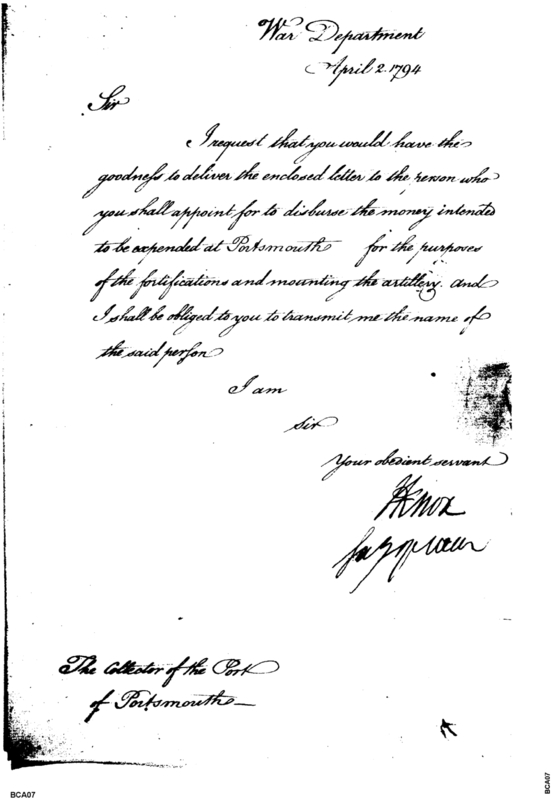 War Department
April 2. 1794
Sir
I request that you would have the
goodness to deliver the enclosed letter to the person who
you shall appoint for to disburse the money intended
to be expended at Portsmouth for the purposes
of the fortifications and mounting the artillery. and
I shall be obliged to you to transmit me the name of
the said person
I am
sir
Your obedient servant
HKnox
The Collector of the Port
of Portsmouth
BCA07
BCA07